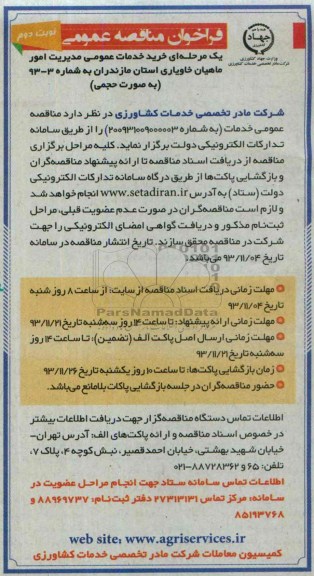 نوبت دوم
فراخوان مناقصه عمومی
جهاد
وزارت جهاد کشاورزی
شرکت مادر تخصصی خدمات کشاورزی
یک مرحله‌ای خرید خدمات عمومی مدیریت امور
ماهیان خاویاری استان مازندران به شماره ۳-۹۳
(به صورت حجمی)
شرکت مادر تخصصی خدمات کشاورزی در نظر دارد مناقصه
عمومی خدمات (به شماره ۲۰۰۹۳۱۰۰۹۰۰۰۰۰۳) را از طریق سامانه
تدارکات الکترونیکی دولت برگزار نماید. کلیه مراحل برگزاری
مناقصه از دریافت اسناد مناقصه تا ارائه پیشنهاد مناقصه‌گران
و بازگشایی پاکت‌ها از طریق درگاه سامانه تدارکات الکترونیکی
دولت (ستاد) به آدرس www.setadiran.ir انجام خواهد شد
و لازم است مناقصه‌گران در صورت عدم عضویت قبلی، مراحل
ثبت‌نام مذکور و دریافت گواهی امضای الکترونیکی را جهت
شرکت در مناقصه محقق سازند. تاریخ انتشار مناقصه در سامانه
تاریخ ۹۳/۱۱/۰۴ می‌باشد.
مهلت زمانی دریافت اسناد مناقصه از سایت: از ساعت ۸ روز شنبه
تاریخ ۹۳/۱۱/۰۴
مهلت زمانی ارائه پیشنهاد: تا ساعت ۱۴ روز سه‌شنبه تاریخ ۹۳/۱۱/۲۱
مهلت زمانی ارسال اصل پاکت الف (تضمین): تا ساعت ۱۴ روز
سه‌شنبه تاریخ ۹۳/۱۱/۲۱
زمان بازگشایی پاکت‌ها: تا ساعت ۱۰ روز یکشنبه تاریخ ۹۳/۱۱/۲۶
حضور مناقصه‌گران در جلسه بازگشایی پاکات بلامانع می‌باشد.
ParsNamadData
اطلاعات تماس دستگاه مناقصه‌گزار جهت دریافت اطلاعات بیشتر
در خصوص اسناد مناقصه و ارائه پاکت‌های الف: آدرس تهران-
خیابان شهید بهشتی، خیابان احمدقصیر، نبش کوچه ۴، پلاک ۷،
تلفن: ۶۵ و ۸۸۷۲۸۳۶۲-۰۲۱
اطلاعات تماس سامانه ستاد جهت انجام مراحل عضویت در
سامانه: مرکز تماس ۲۷۳۱۳۱۳۱ دفتر ثبت‌نام: ۸۸۹۶۹۷۳۷ و
۸۵۱۹۳۷۶۸
web site: www.agriservices.ir
کمیسیون معاملات شرکت مادر تخصصی خدمات کشاورزی